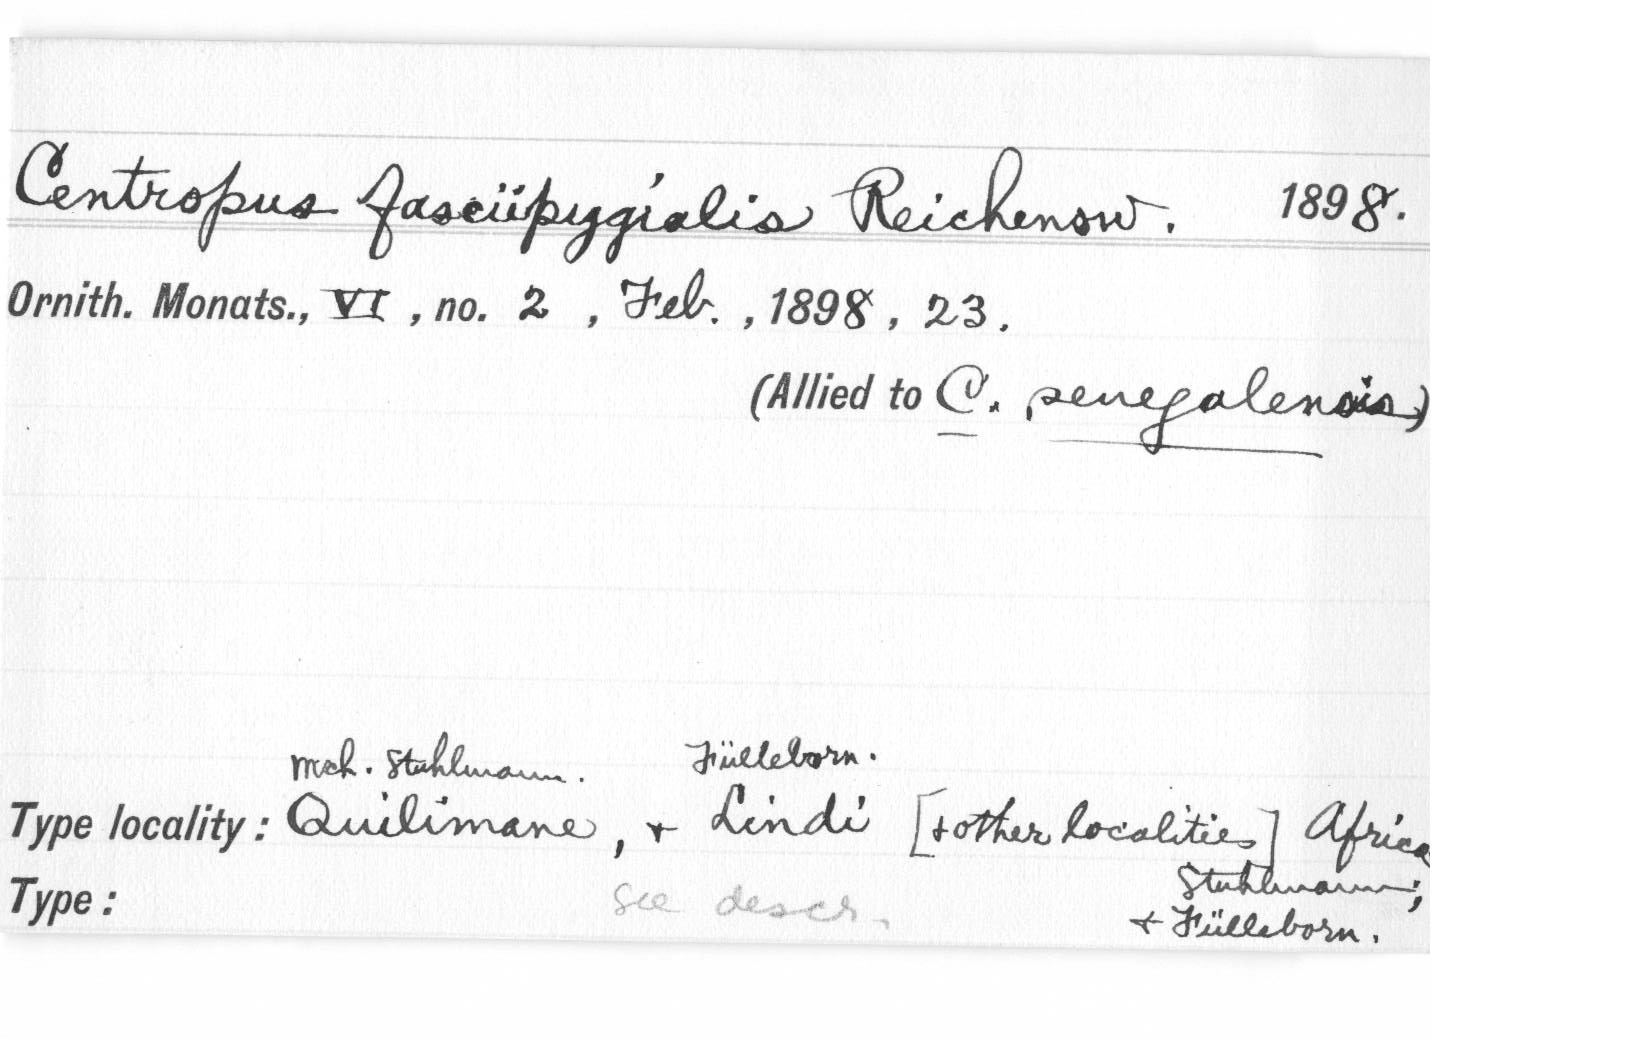 Centropus fasciipygialis Reichenow. 1898.
Ornith. Monats., VI, no. 2, Feb., 1898, 23.
(Allied to C. senegalensis)
Stuhlmann. Fülleborn.
Type locality: Quilimane, + Lindi [+ other localities] Africa
Stuhlmann;
Type: see descr. + Fülleborn.